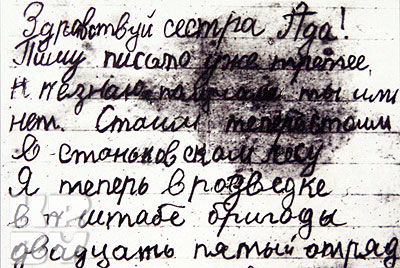 Здравствуй сестра Ада!
Пишу письмо уже третее
и незнаю ты или
нет. Стаим теперь стоим
В станьковском лесу
Я теперь в розведке
в п штабе бригоды
двадцать пятый отряд